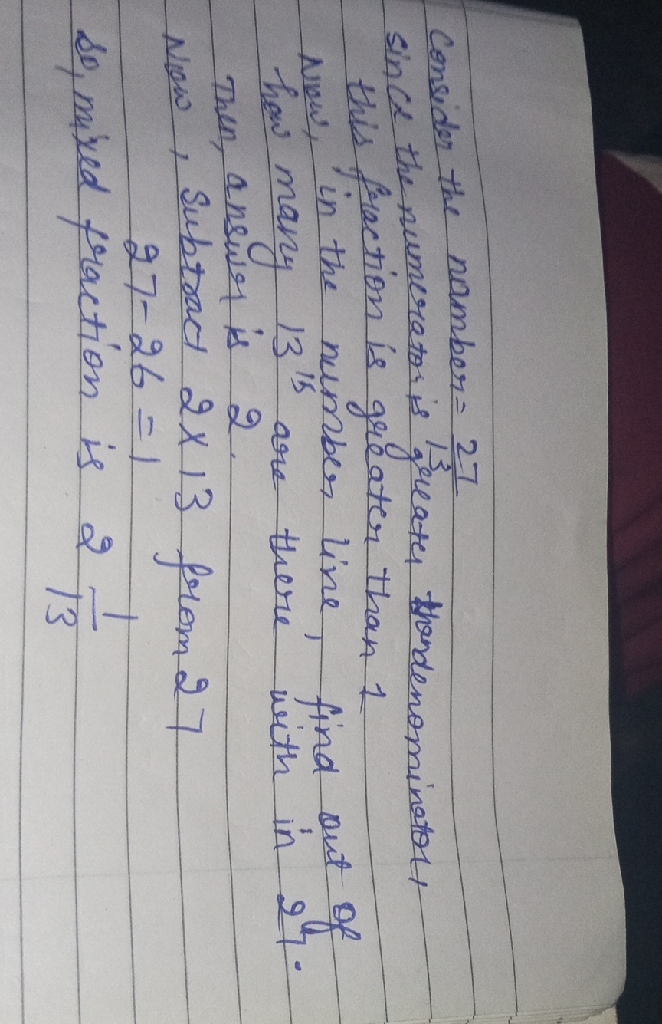 Consider the number = 27/13
since the numerator is greater than denominator,
this fraction is greater than 1
Now, in the number line, find out of
how many 13's are there with in 27.
Then, answer is 2.
Now, Subtract 2x13 from 27
27-26=1
So, mixed fraction is 2 1/13